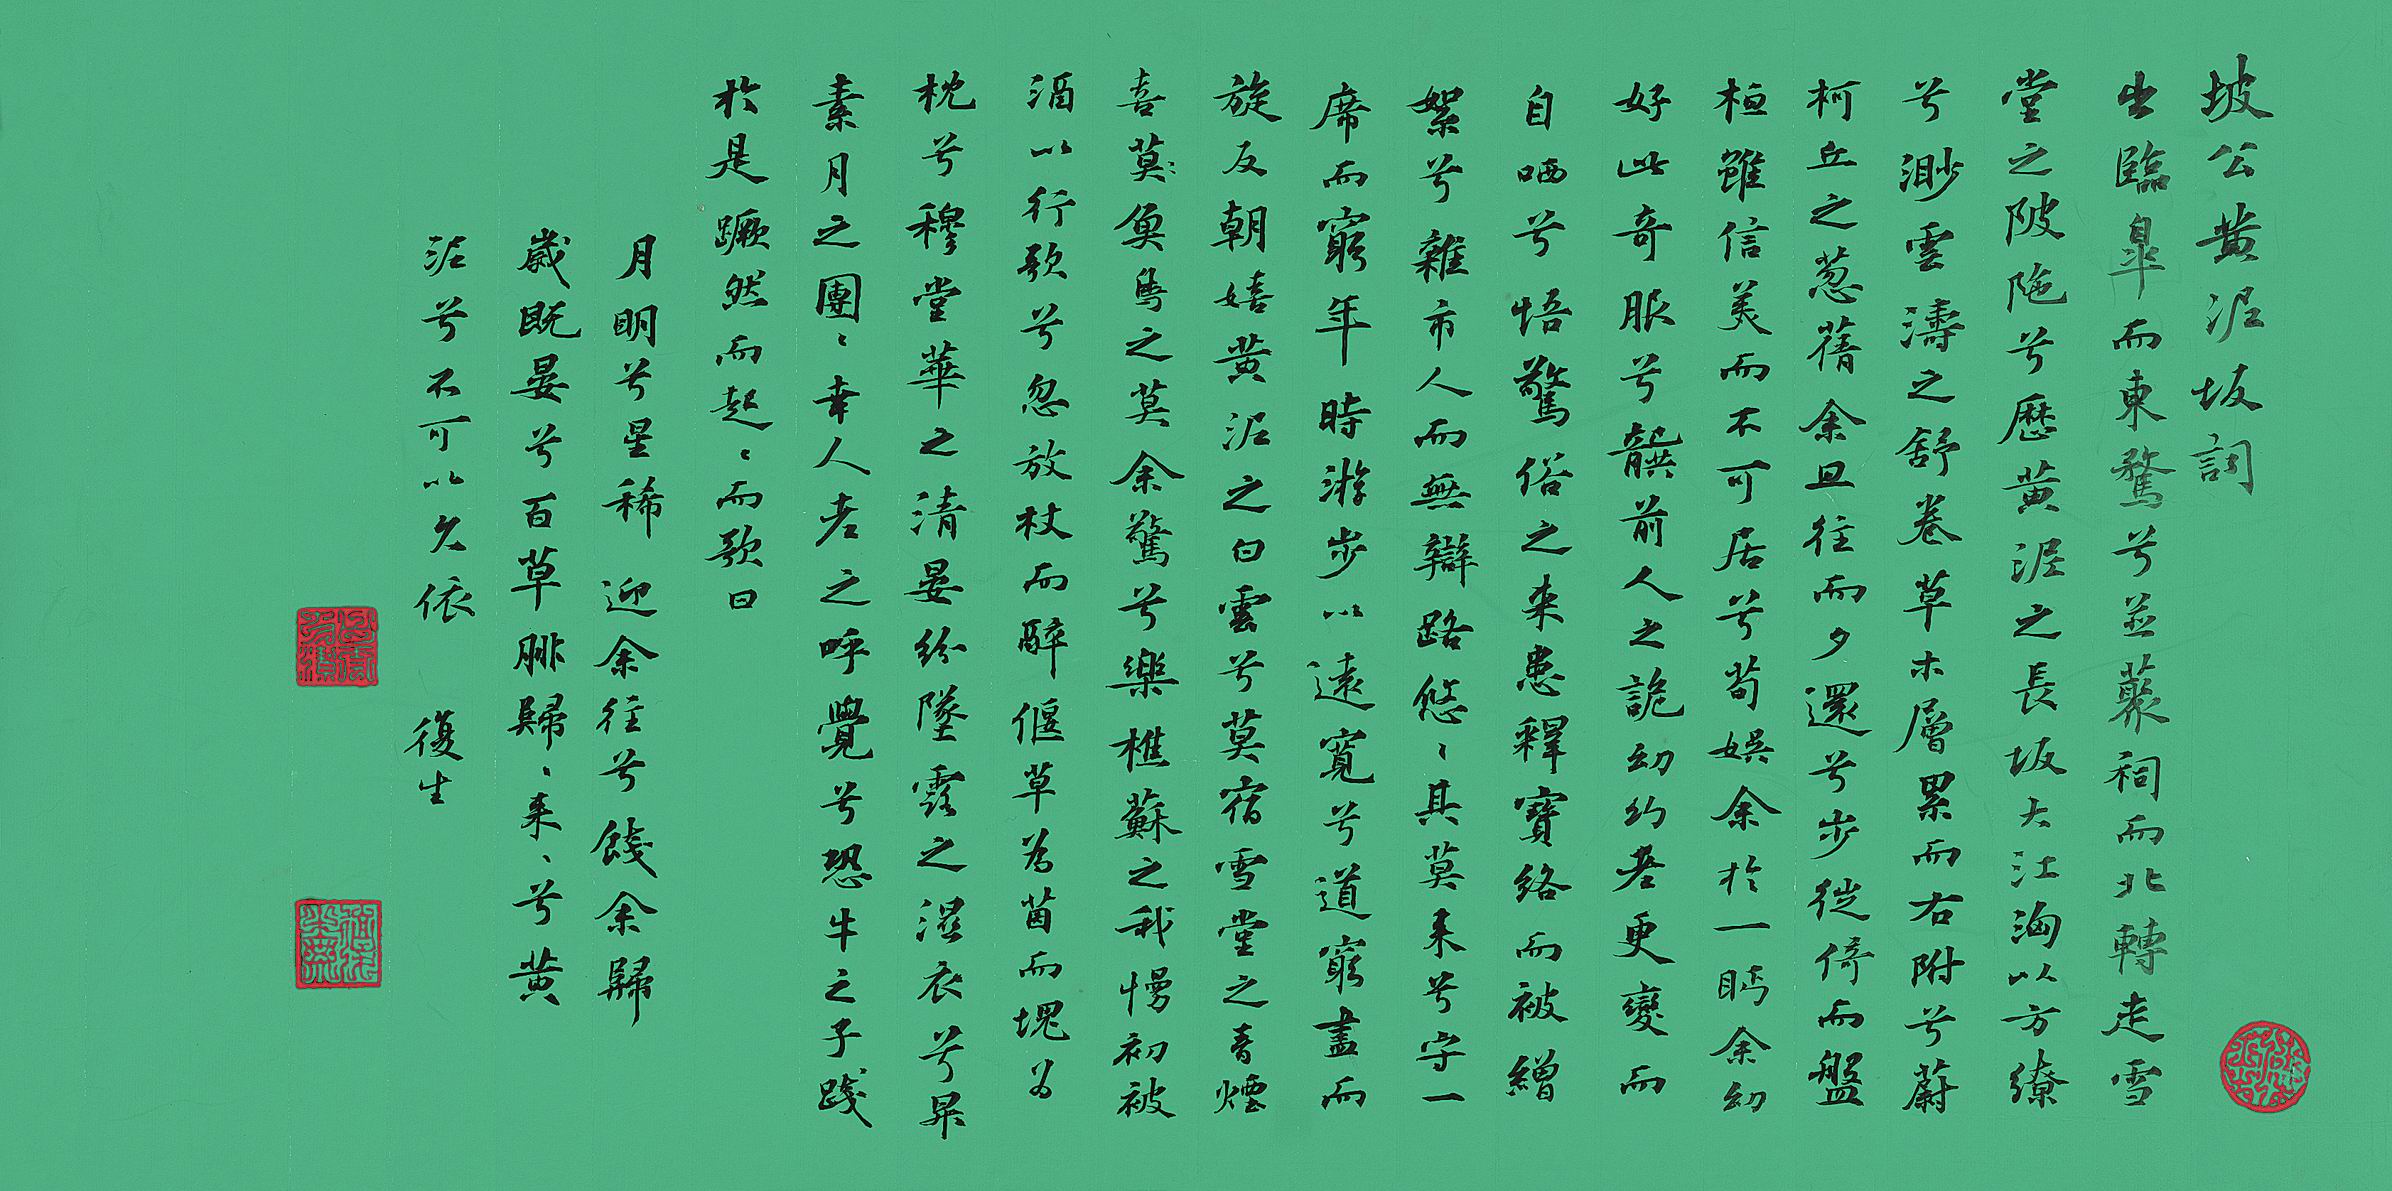 坡公黄泥坂詞
出臨皐而東騖兮並藂祠而北轉走雪
堂之陂陁兮歷黄泥之長坂大江洶以方繚
兮渺雲濤之舒卷草木層累而右附兮蔚
柯丘之葱蒨余旦往而夕還兮步徙倚而盤
桓雖信美而不可居兮苟娱余於一眄余幼
好此奇服兮襲前人之詭幻老更變而
自哂兮悟驚俗之来患釋寶絡而被繒
絮兮雜市人而無辯路悠〻其莫来兮守一
席而窮年時游步以遠寬兮道窮盡而
旋反朝嬉黄泥之白雲兮莫宿雪堂之青煙
喜莫〻魚鳥之莫余驚兮樂樵蘇之我慢初被
酒以行歌兮忽放杖而醉偃草為茵而塊为
枕兮穆堂華之清晏紛墜露之濕衣兮昇
素月之團〻幸人老之呼覺兮恐牛之子踐
於是蹶然而起〻而歌曰
月明兮星稀迎余往兮餞余歸
歲既晏兮百草腓歸〻来〻兮黄
泥兮不可以久依 復生